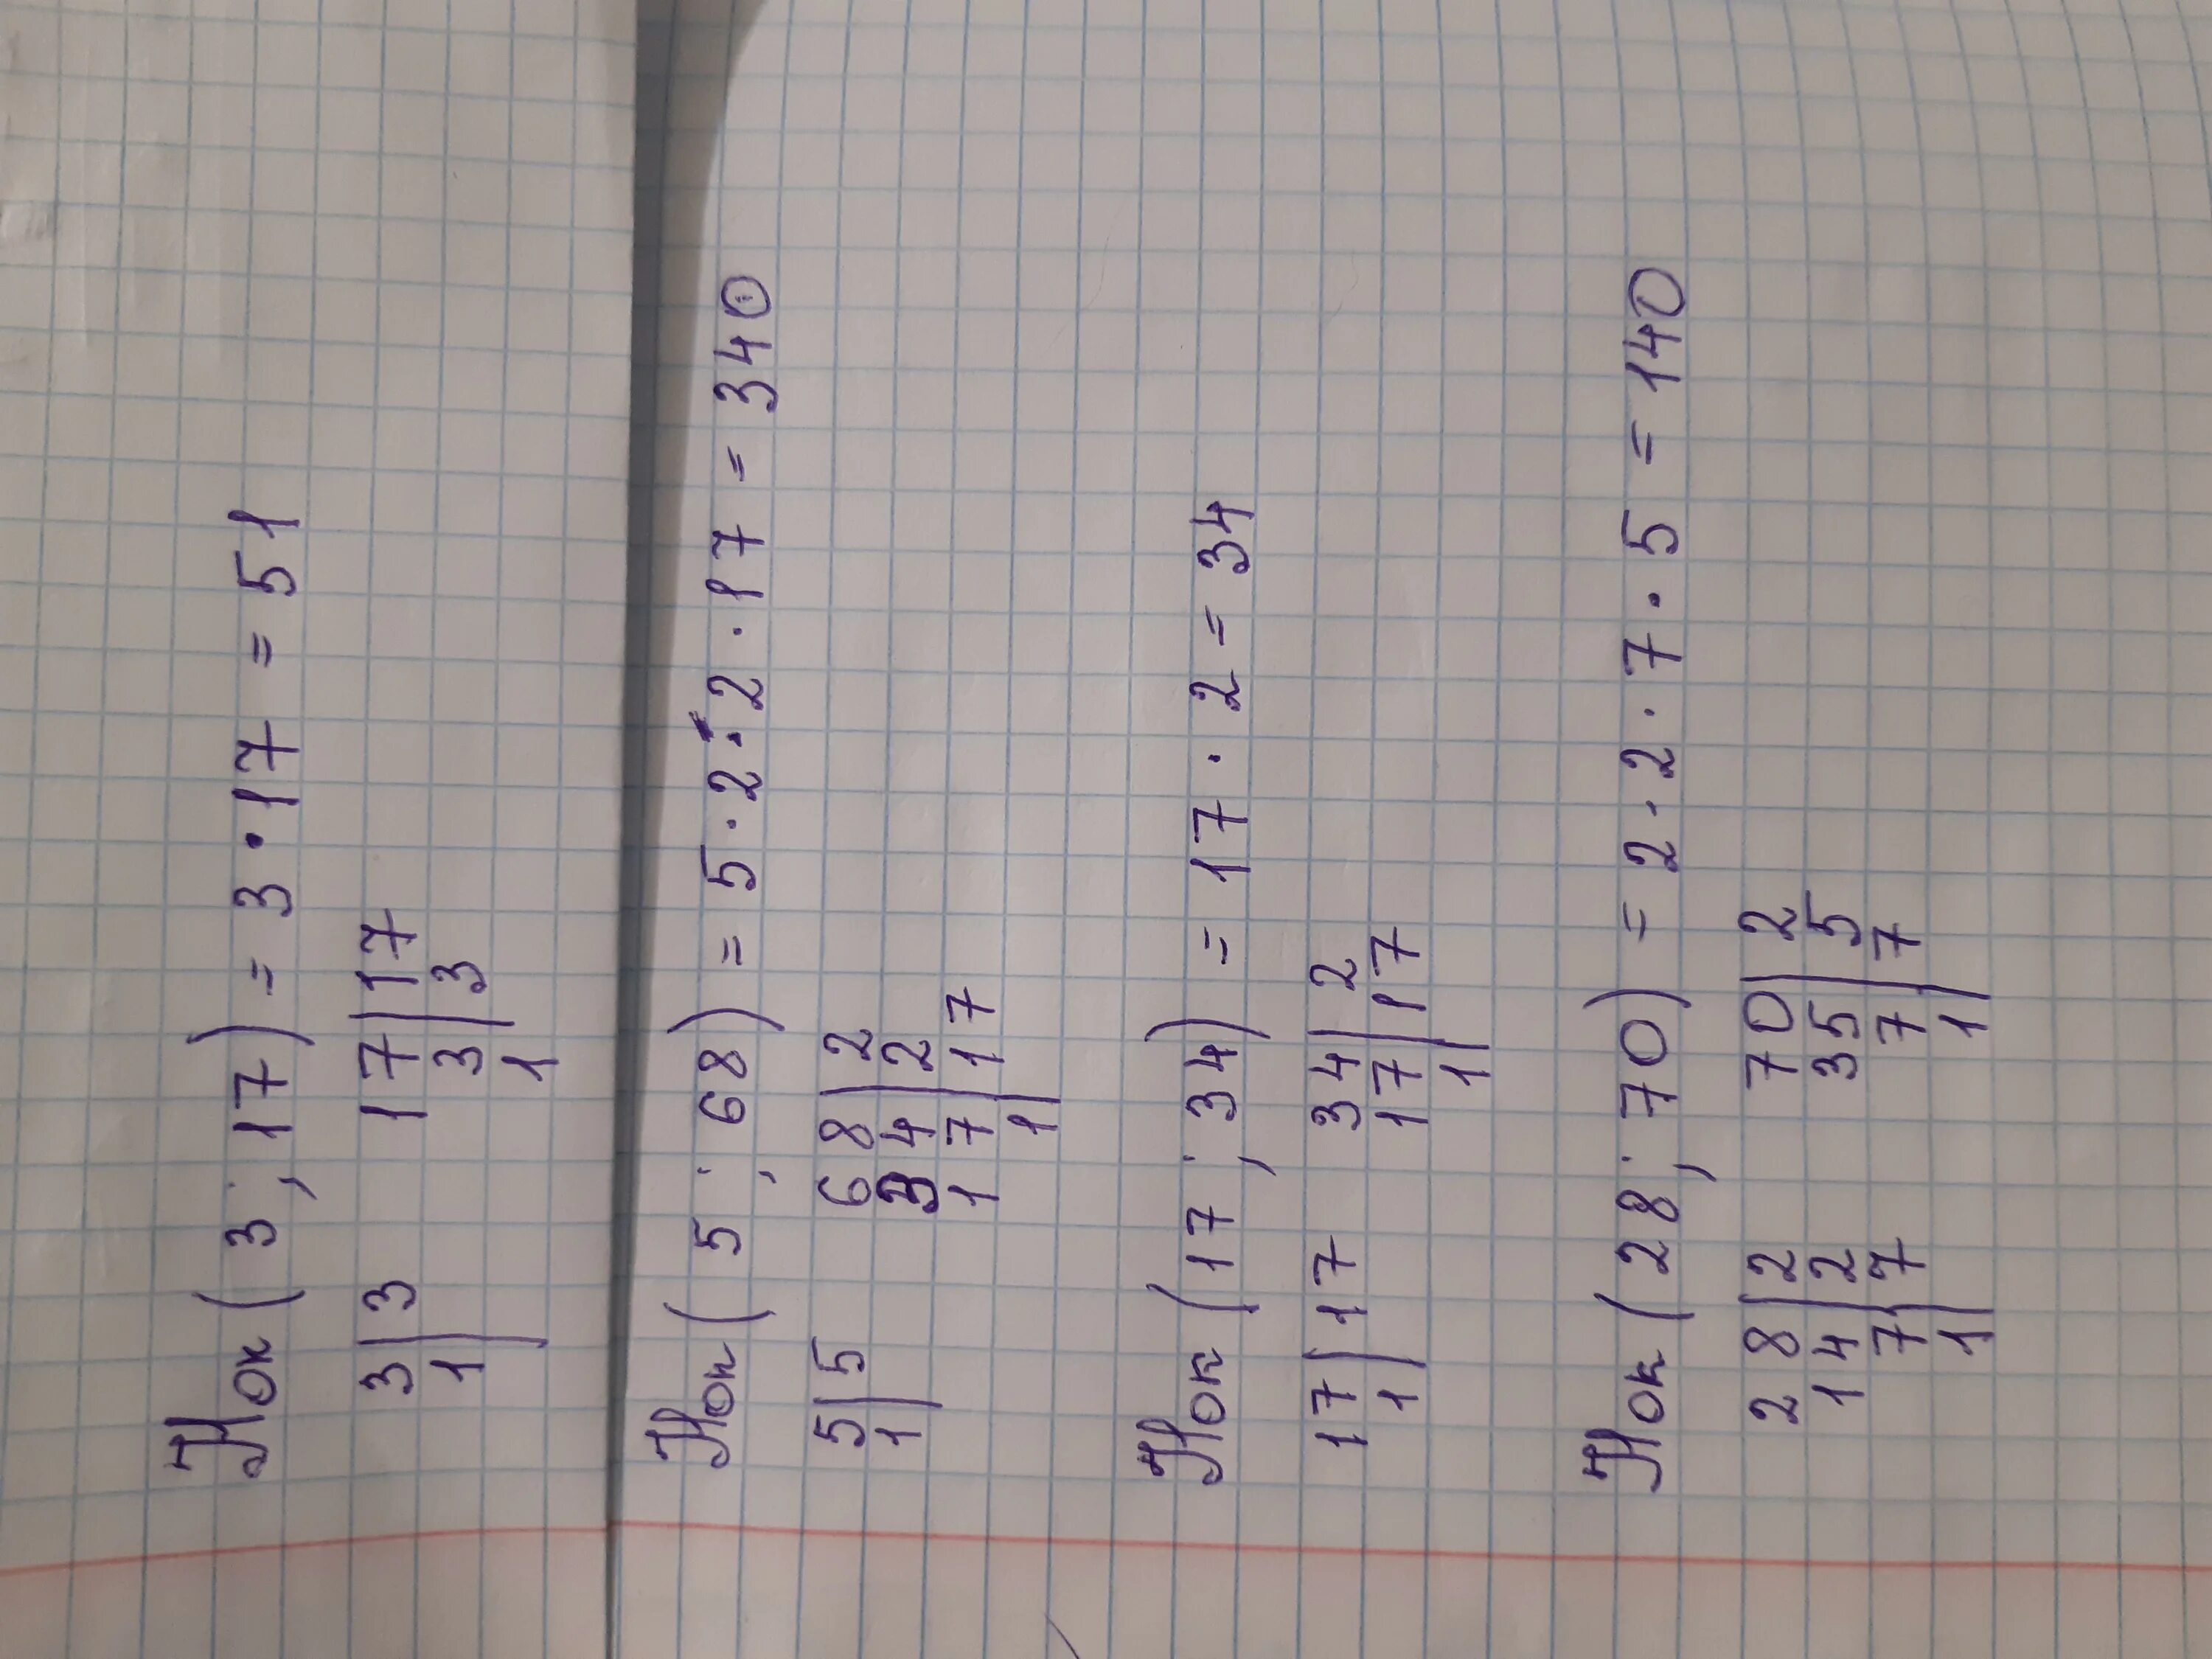 Нок (3; 17) = 3 · 17 = 51
3 | 3   17 | 17
1 |   3 | 3
1
Нок (5; 68) = 5 · 2 · 2 · 17 = 340
5 | 5   68 | 2
1 |   34 | 2
17 | 17
1 |
Нок (17; 34) = 17 · 2 = 34
17 | 17   34 | 2
1 |   17 | 17
1 |
Нок (28; 70) = 2 · 2 · 7 · 5 = 140
28 | 2   70 | 2
14 | 2   35 | 5
7 | 7   7 | 7
1 |   1 |